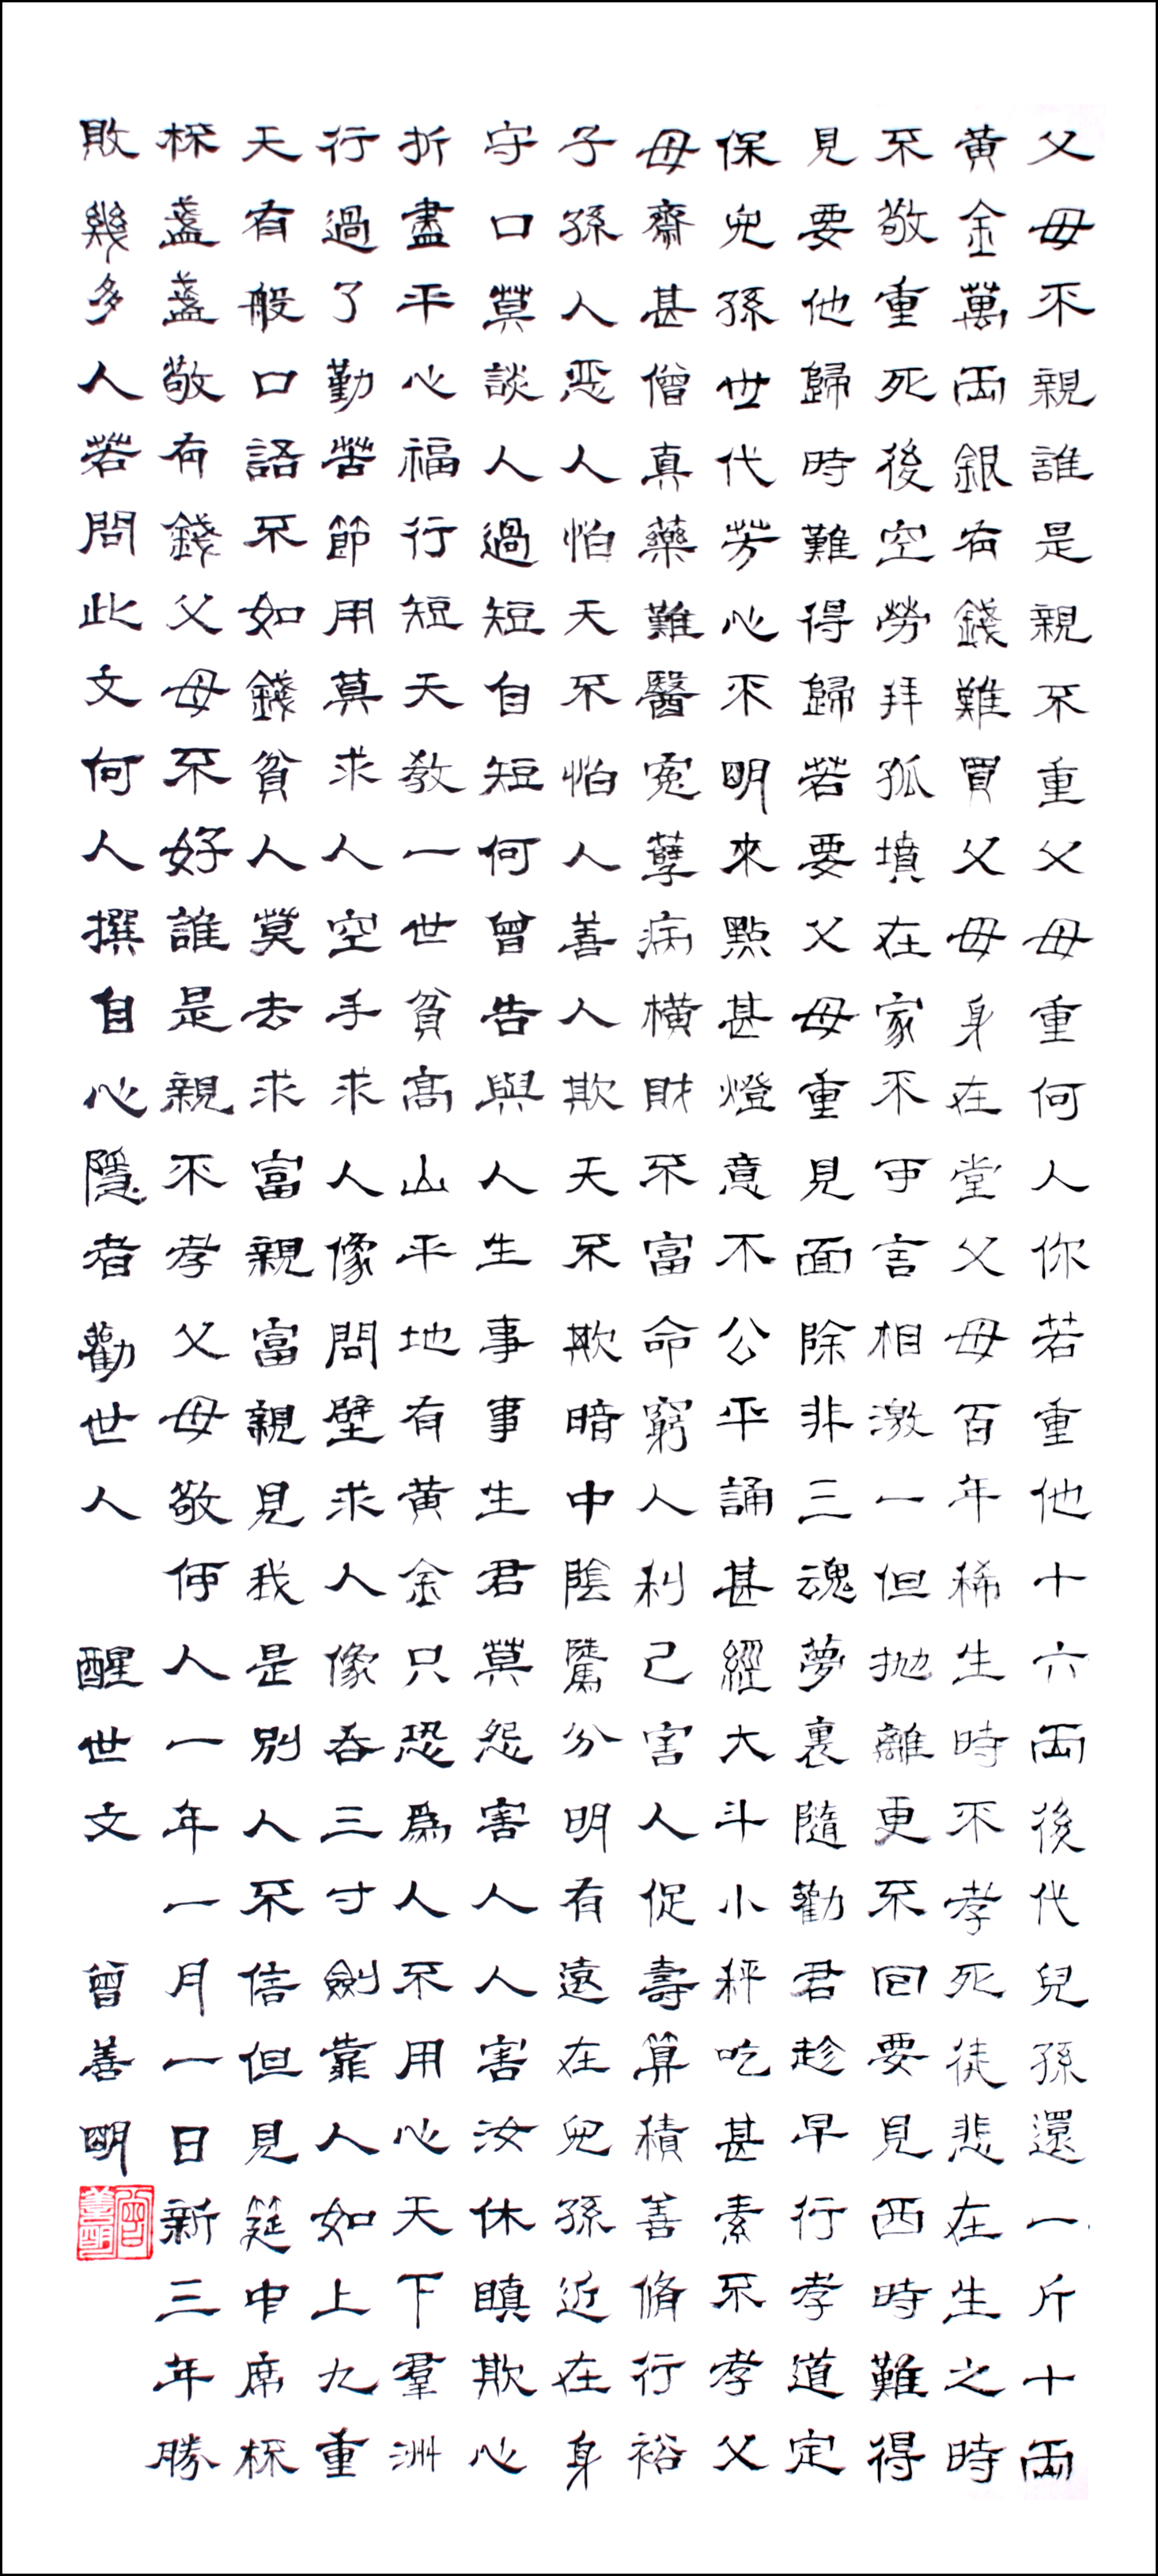 父母不親誰是親不重父母重何人你若重他十六兩後代兒孫還一斤十兩
黃金萬兩銀有錢難買父母身在堂父母百年稀生時不孝死徒悲在生之時
不敬重死後空勞拜孤墳在家不可言相激一但抛離更不回要見西時難得
見要他歸時難得歸若要父母重見面除非三魂夢裏隨勸君趁早行孝道定
保兒孫世代芳心不明來點甚燈意不公平誦甚經大斗小秤吃甚素不孝父
母齋甚僧真藥難醫冤孽病橫財不富命窮人利己害人促壽算積善脩行裕
子孫人惡人怕天不怕人善人欺天不欺暗中陰騭分明有遠在兒孫近在身
守口莫談人過短自短何曾告與人生事事生君莫怨害人人害汝休瞋欺心
折盡平心福行短天教一世貧高山平地有黃金只恐為人不用心天下羣洲
行過了勤苦節用莫求人空手求人像問壁求人像吞三寸劍靠人如上九重
天有般口語不如錢貧人莫去求富親富親見我是別人不信但見筵中席杯
杯盞盞敬有錢父母不好誰是親不孝父母敬何人一年一月一日新三年勝
敗幾多人若問此文何人撰自心隱者勸世人 醒世文 曾善明
曾善明